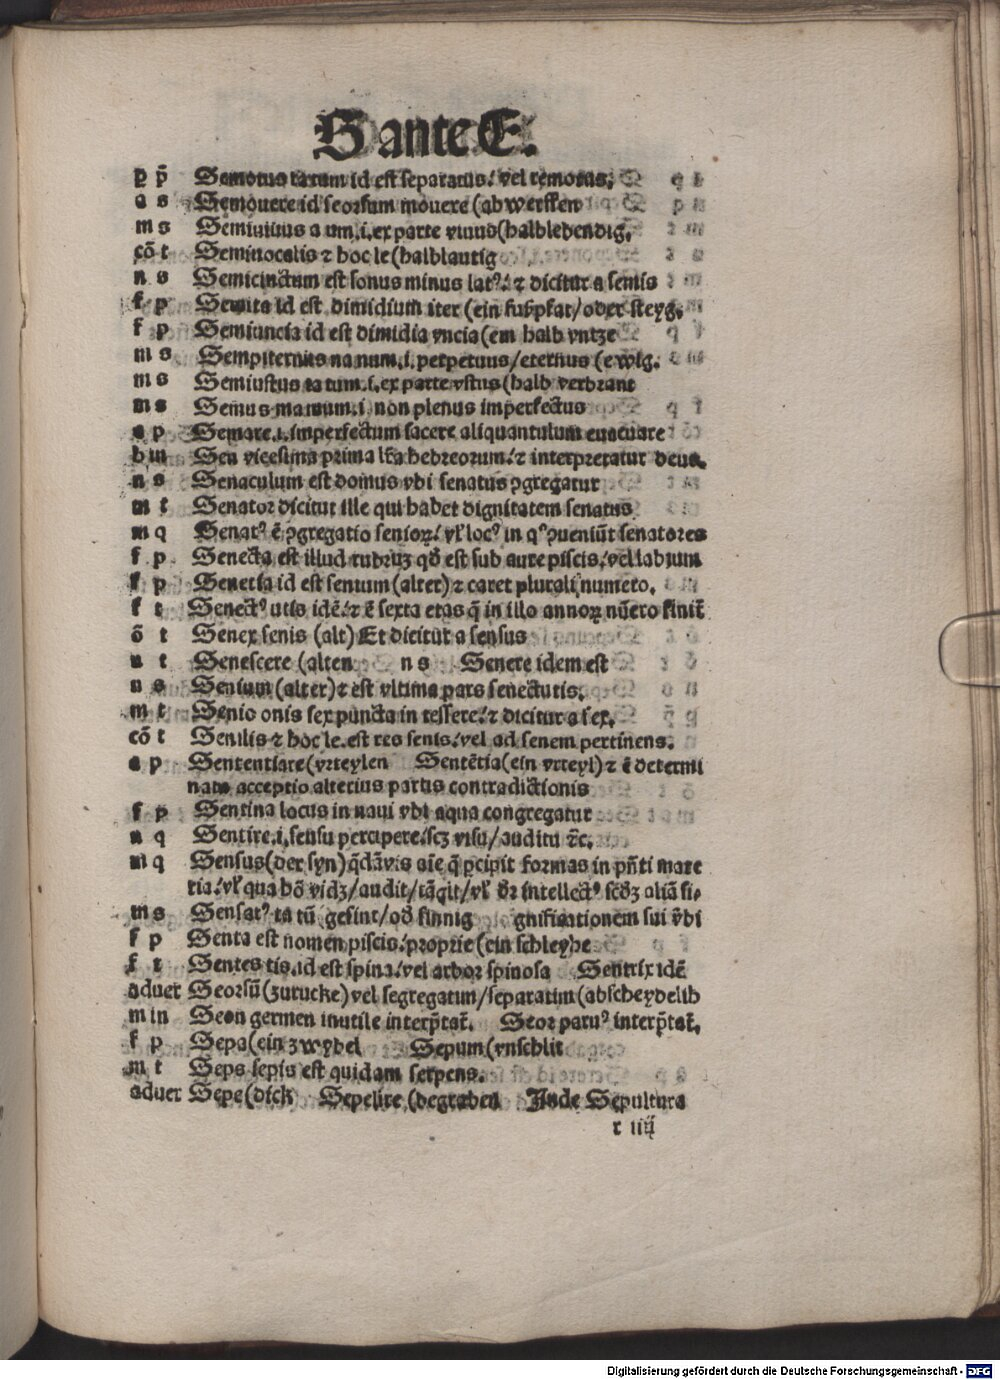 S ante E.
p p̄ Semotus ta tum id est separatus: vel remotus.
a s Semouere id seorsum mouere (abwerffen
m s Semiuiuus a um .i. ex parte viuus (halblebendig.
cō t Semiuocalis ⁊ hoc le (halblautig
n s Semicinctum est sonus minus latꝰ: ⁊ dicitur a semis
f p Semita id est dimidium iter (ein fußpfat/oder steyg.
f p Semiuncia id est dimidia vncia (ein halb vntze
m s Sempiternus na num .i. perpetuus/eternus (ewig.
m s Semiustus ta tum .i. ex parte vstus (halb verbrant
m s Semus ma mum .i. non plenus imperfectus
a p Semare .i. imperfectum facere aliquantulum euacuare
h in Sen vicesima prima lr̄a hebreorum: ⁊ interpretatur deus.
n s Senaculum est domus vbi senatus ꝯgregatur
m t Senator dicitur ille qui habet dignitatem senatus
m q Senatꝰ ē ꝯgregatio senioꝝ: vl̓ locꝰ in qº ꝯueniūt senatores
f p Senecta est illud rubruꝫ qd̓ est sub aure piscis: vel labrum
f p Senetia id est senium (alter) ⁊ caret plurali numero.
f t Senectꝰ utis idē: ⁊ ē sexta etas q̄ in illo annoꝝ nūero finit̄
ō t Senex senis (alt) Et dicitur a sensus
n t Senescere (alten n s Senere idem est
n s Senium (alter) ⁊ est vltima pars senectutis.
m t Senio onis sex puncta in tessere: ⁊ dicitur a sex.
cō t Senilis ⁊ hoc le. est res senis: vel ad senem pertinens.
a p Sententiare (vrteylen Sentētia (ein vrteyl) ⁊ ē determi
nata acceptio alterius partis contradictionis
f p Sentina locus in naui vbi aqua congregatur
n q Sentire .i. sensu percipere: scꝫ visu/auditu ⁊c̄.
m q Sensus (der syn) q̄dā vis aīe q̄ ꝑcipit formas in pn̄ti mate
ria: vl̓ qua hō vidꝫ/audit/tāgit/vl̓ dr̄ intellectꝰ scd̓ꝫ aliā si⸗
m s Sensatꝰ ta tū (gesint/od̓ sinnig gnificationem sui v̓bi
f p Senta est nomen piscis: proprie (ein schleyhe
f t Sentes tis. id est spina: vel arbor spinosa Sentrix idē
aduer Seorsū (zurucke) vel segregatim/separatim (abscheydelich
m in Seon germen inutile interp̄tat̄. Seor paruꝰ interp̄tat̄.
f p Sepa (ein zwybel Sepum (vnschlit
m t Seps sepis est quidam serpens.
aduer Sepe (dick Sepelire (begraben Inde Sepultura
r iiij
Digitalisierung gefördert durch die Deutsche Forschungsgemeinschaft - DFG